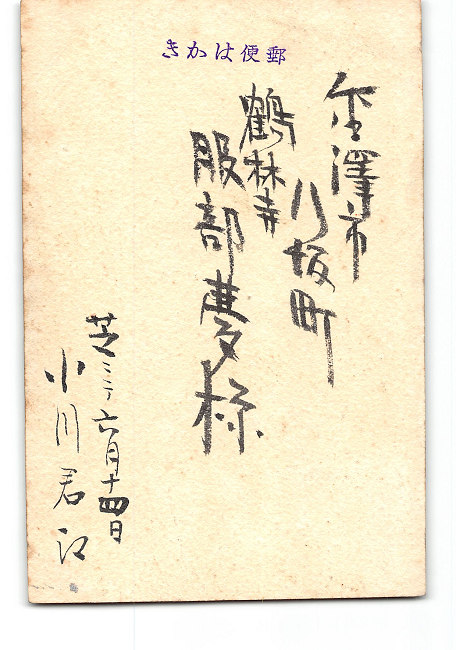 郵便はかき
金澤市
八坂町
鶴林寺
服部夢様
芝ニテ六月十四日
小川君江